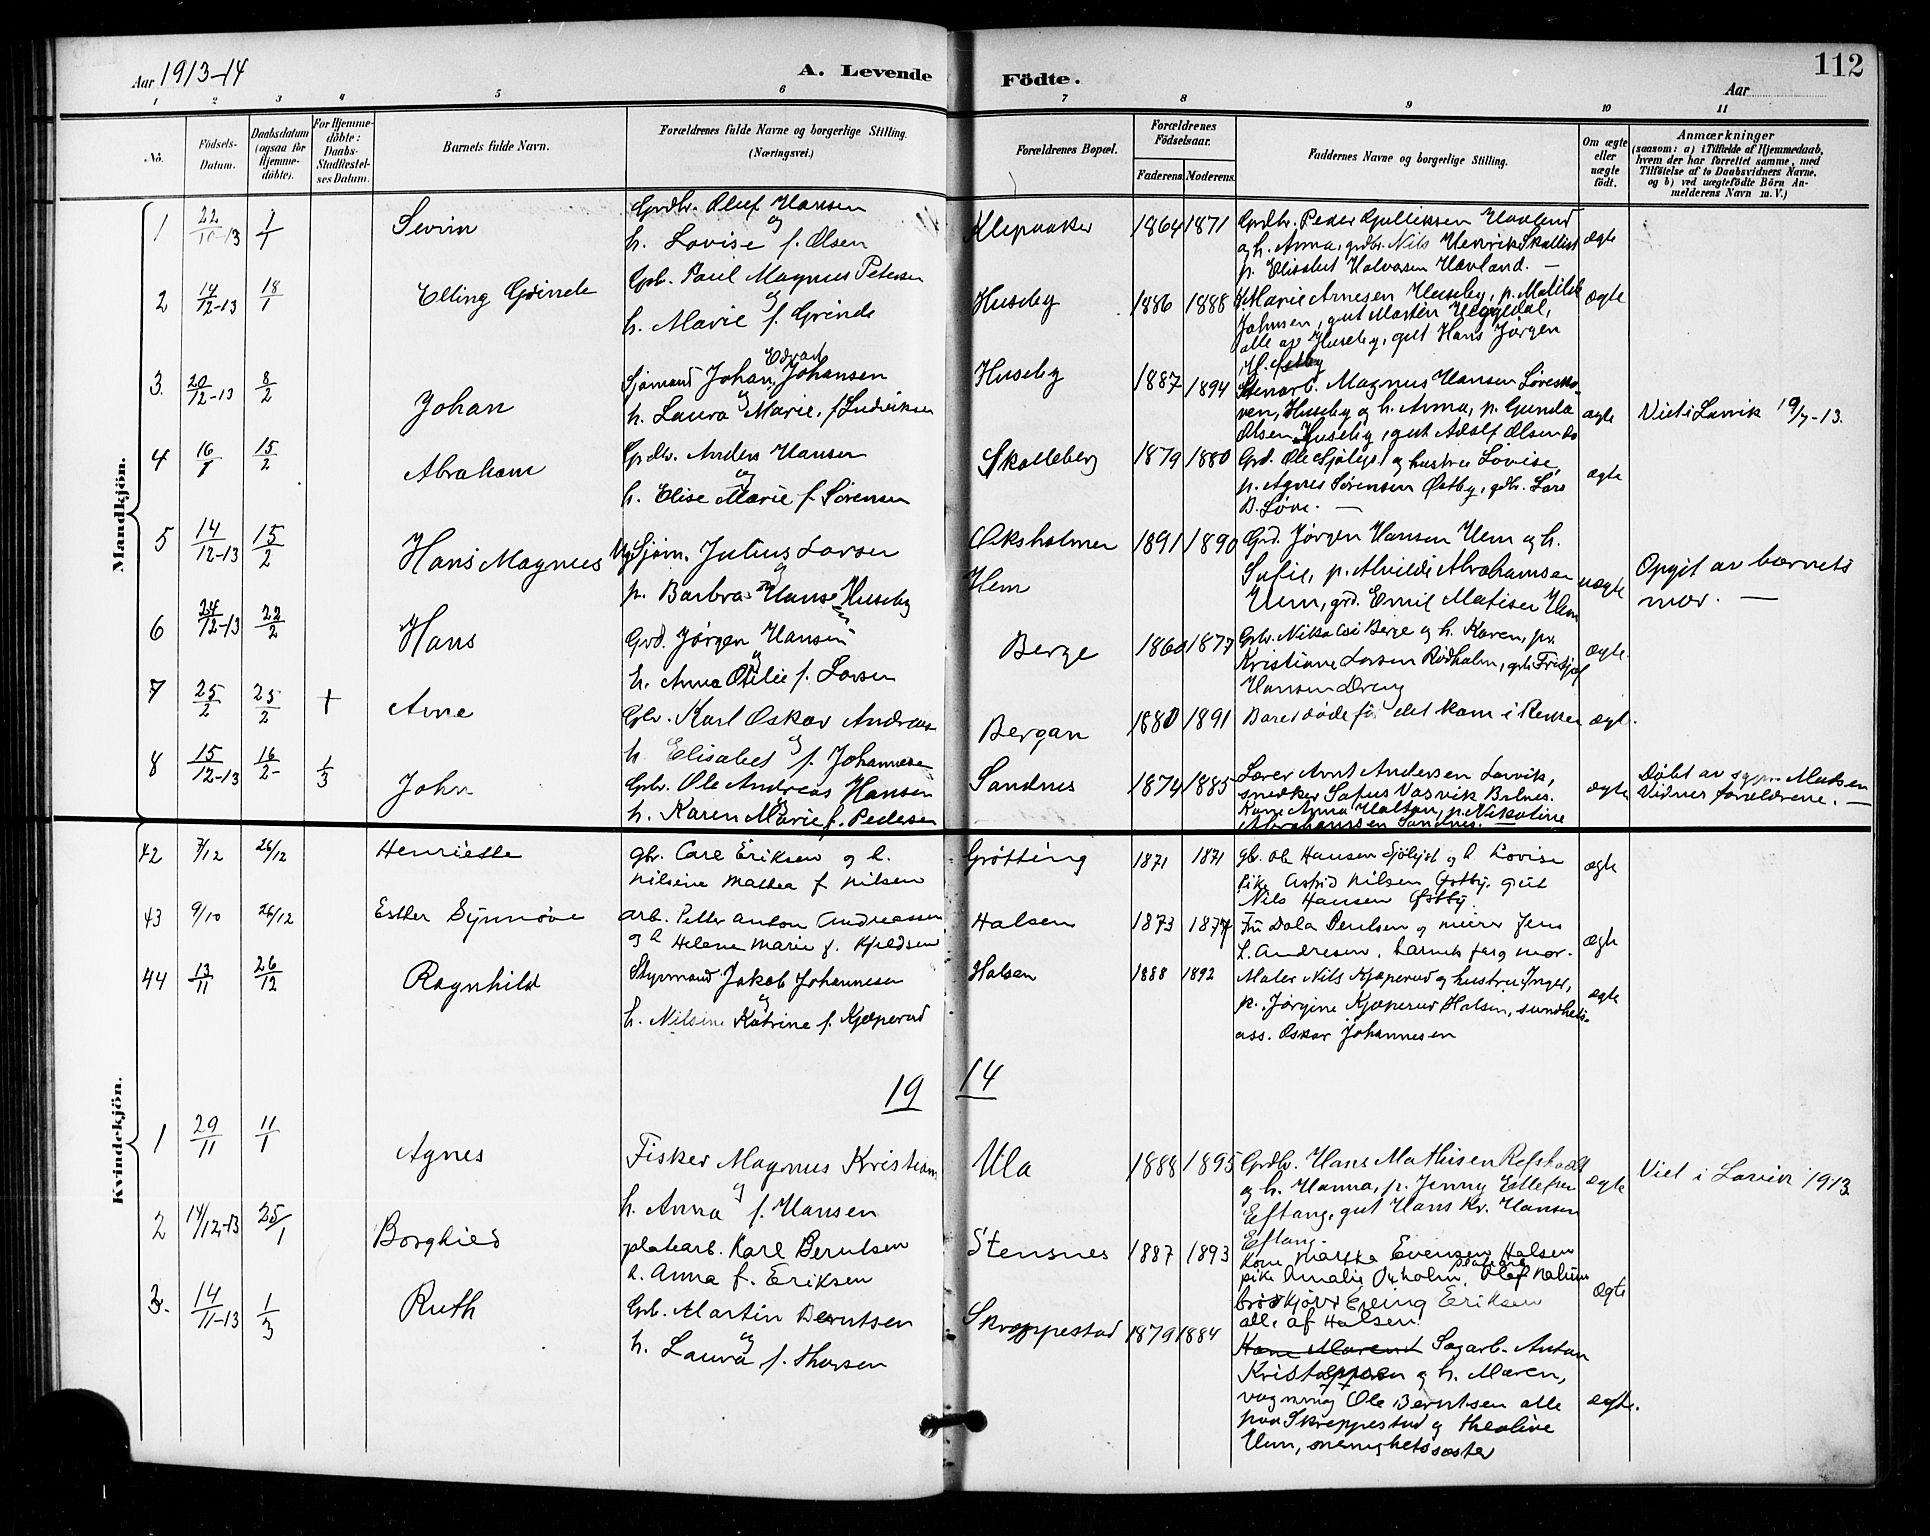 Aar 1913-14
A. Levende Födte.
Aar
112
1 2 3 4 5 6 7 8 9 10 11
No.
Födsels-Datum.
Daabsdatum (ogsaa for Hjemmedöbte).
For Hjemmedöbte: Daabs-Stadfæstelses Datum.
Barnets fulde Navn.
Forældrenes fulde Navne og borgerlige Stilling. (Næringsvei.)
Forældrenes Bopæl.
Forældrenes Födselsaar.
Faderens. Moderens.
Faddernes Navne og borgerlige Stilling.
Om ægte eller uægte födt.
Anmærkninger (saasom: a) i Tilfælde af Hjemmedaab, hvem der har forrettet samme, med Tilföielse af to Daabsvidners Navne, og b) ved uægtefödte Börn Anmelderens Navn m. V.)
Mandkjön.
1 22/10-13 1/1 Sevrin
Grdbr. Oluf Hansen
og
h. Lovise f. Olsen
Klepaaker 1864 1871
Grdbr. Peder Gulliksen Havland
og h. Anna, grdbr. Nils Henrik Skallist
p. Elisabet Halvorsen Havland. —
ægte
2 14/12-13 18/1 Elling Grinde
Grb. Paul Magnus Petersen
og
h. Marie f. Grinde
Huseby 1886 1888
Marie Arnesen Huseby, p. Matilde
Johnsen, gut Martin Heggedal,
alle av Huseby, gut Hans Jørgen
ægte
3. 20/12-13 8/2 Johan
Edvard
Sjømand Johan Johansen
og
h. Laura Marie, f. Ludviksen
Huseby 1887 1894
Stenarb. Magnus Hansen Løvesko-
ven, Huseby og h. Anna, p. Gunda
Olsen Huseby, gut Adolf Olsen do
ægte
Viet i Larvik 19/7-13.
4 16/1 15/2 Abraham
Grdbr. Anders Hansen
og
h. Elise Marie f. Sørensen
Skalleberg 1879 1880
Grd. Ole Sjølyst og hustru Lovise,
p. Agnes Sørensen Østby, gdbr. Lars
B. Løve. —
ægte
5 14/12-13 15/2 Hans Magnus
Ug. Sjøm. Julius Larsen
og
p. Barbra Hanse Huseby
Oksholmen
Hem
1891 1890
Grd. Jørgen Hansen Hem og h.
Sofie, p. Alvilde Abrahamsen
Hem, grd. Emil Matisen Hem
uægte
Opgit av barnets
mor. —
6 24/12-13 22/2 Hans
Grd. Jørgen Hansen
og
h. Anna Otilie f. Larsen
Berge 1860 1877
Grb. Nikolai Berge og h. Karen, p.
Kristiane Larsen Rødholm, grb. Fritjof
Hansen Dreng
ægte.
7 25/2 25/2 + Arne
Gbr. Karl Oskar Andreas
og
h. Elisabet f. Johannesen
Bergan 1880 1891
Baret døde før det kom i Kirken
ægte.
8 15/12-13 16/2 1/3 John
Grb. Ole Andreas Hansen
og
h. Karen Marie f. Pedersen
Sandnes 1874 1885
Lærer Arnt Andersen Larvik,
snedker Sofus Vasvik
Kone Anna Halsen, p. Nikoline
Abrahamsen Sandnes.
ægte
Døbt av Madsen
Vidner forældrene. —
Kvindekjön.
42 7/12 26/12 Henriette
gbr. Carl Eriksen og h.
Nilsine Mathea f. Nilsen
Grøtting 1871 1871
gb. Ole Hansen Sjølyst og h Lovise
pike Astrid Nilsen Østby, gut
Nils Hansen Østby.
ægte
43 9/10 26/12 Esther Synnøve
arb. Petter Anton Andreassen
og h Helene Marie f. Kjeldsen
Halsen 1873 1877
Fru Dala Poulsen og murer Jens
L. Andresen, barnets far og mor.
ægte
44 13/11 26/12 Ragnhild
Styrmand Jakob Johannesen
og
h. Nilsine Katrine f. Kjæperud
Halsen 1888 1892
Maler Nils Kjæperud og hustru Inger,
p. Jørgine Kjæperud Halsen, sundheds-
ass. Oskar Johannesen
ægte
19 14
1 29/11 11/1 Agnes
Fisker Magnus Kristians
og
h. Anna f. Hansen
Ula 1888 1895
Grdbr. Hans Mathisen Refsholdt
og h. Hanna, p. Jenny Ellefsen
Eftang, gut Hans Kr. Hansen
Eftang.
ægte
Viet i Larvik 1913
2 14/12-13 25/1 Borghild
platearb. Karl Berntsen
h. Anna f. Eriksen
Stensnes 1887 1893
Kone Martha Evensen Halsen
pike Amalie Oxholm, platearb. Olaf Nalum
brødkjører Erling Eriksen
alle af Halsen.
ægte
3. 14/11-13 1/3 Ruth
Grb. Martin Berntsen
og
h. Laura f. Thorsen
Skreppestad 1879 1884
Sagarb. Anton
Kristoffersen og h. Maren,
vognmg Ole Berntsen alle
paa Skreppestad og Theoline
Hem, menighetssøster
ægte.